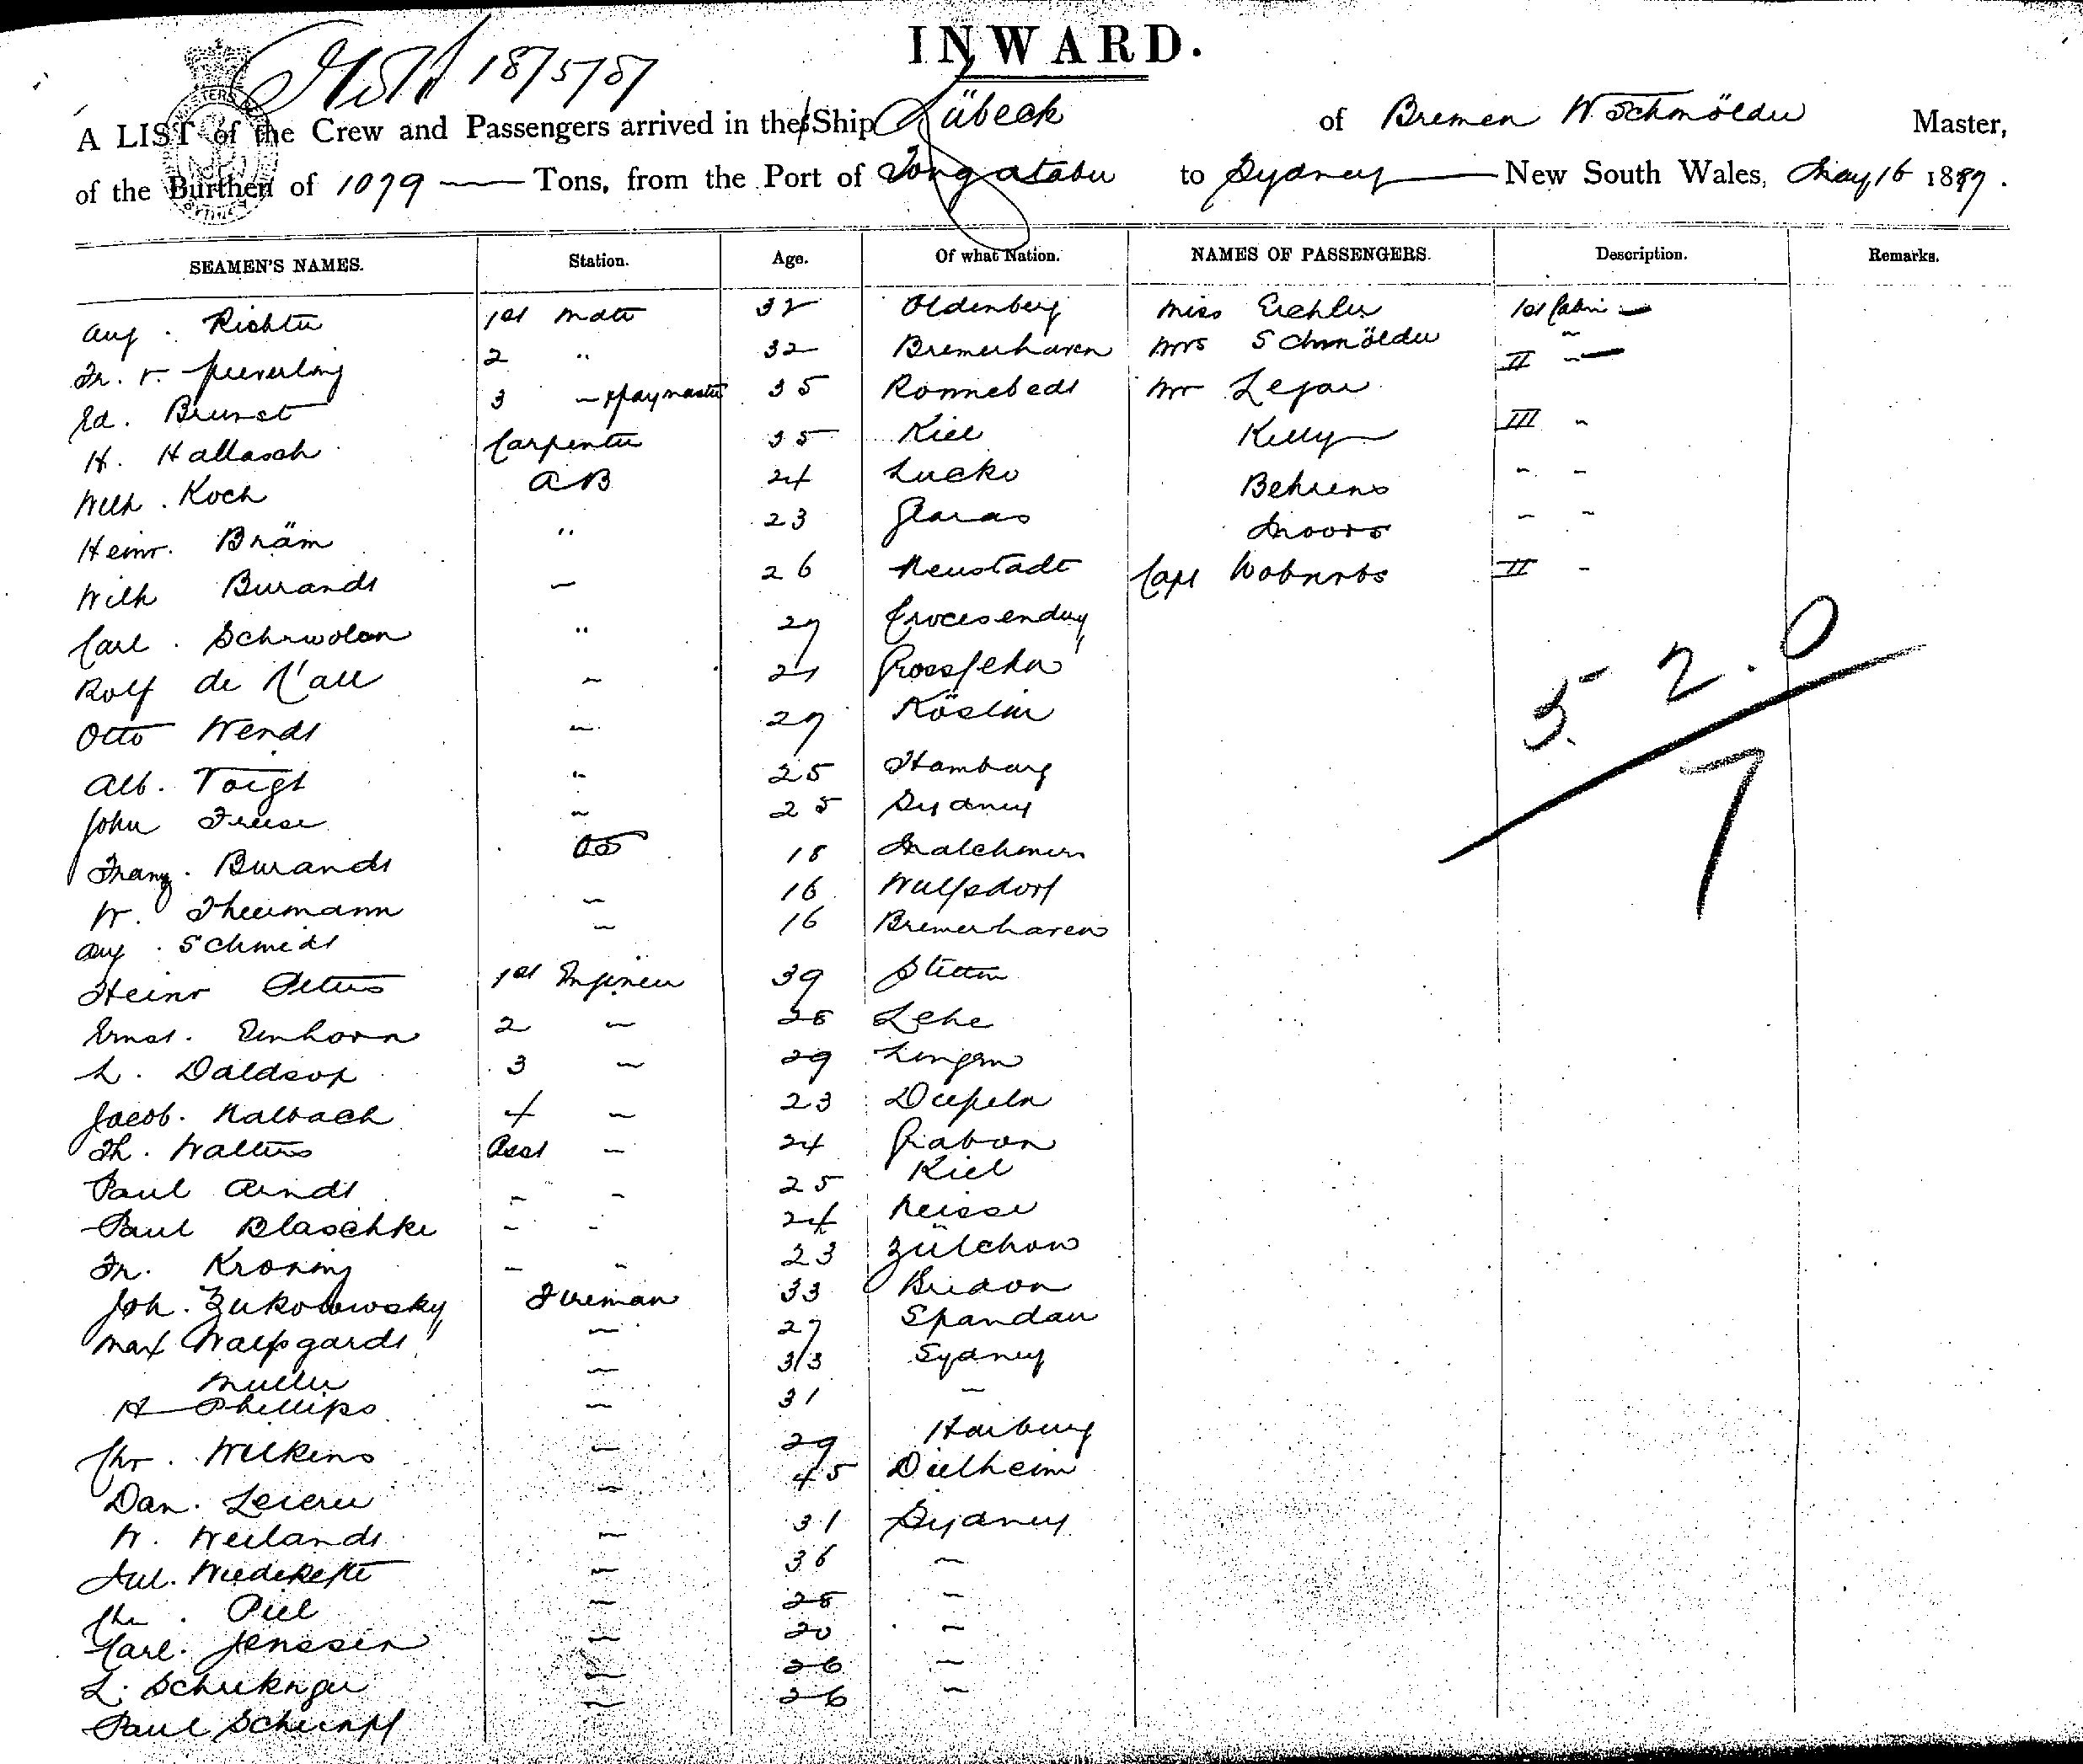 INWARD.
18/5/87
A LIST of the Crew and Passengers arrived in the s/Ship Lübeck of Bremen W Schmölder Master,
of the Burthen of 1079 Tons, from the Port of Tongatabu to Sydney New South Wales, May 16 1887.
SEAMEN'S NAMES. Station. Age. Of what Nation. NAMES OF PASSENGERS. Description. Remarks.
Aug. Richter 1st Mate 32 Oldenberg Miss Eichler 1st Cabin
Fr. v. 2 " 32 Bremerhaven Mrs Schmölder "
Ed. Brunst 3 " & paymaster 35 Mr II "
H. Hallasch Carpenter 35 Kiel Kelly III "
Wilh. Koch AB 24 Behrens " "
Heinr. Bräm " 23 Moors " "
Wilh Burandt " 26 Neustadt Capt II "
Carl. " 27
Rolf de " 21
Otto Wendt " 27 Köslin
Alb. Voigt " 25 Hamburg
John Freese " 25 Sydney
Franz. Burandt OS 18
W. Theumann " 16 Wulfsdorf
Aug. Schmidt " 16 Bremerhaven
Heinr Peters 1st Engineer 39 Stettin
Ernst. Einhorn 2 " 28 Lehe
L. 3 " 29 Lingen
Jacob. Kalbach 4 " 23
Th. Walters Asst " 24 Grabow
Paul Arndt " " 25 Kiel
Paul Blaschke " " 24 Neisse
Fr. Kroning " " 23 Züllchow
Joh. Zukolowsky Fireman 33
Max " 27 Spandau
Muller " 33 Sydney
H Phillips " 31 "
Chr. Wilkens " 29 Harburg
Dan. " 45 Dielheim
W. Weilandt " 31 Sydney
Jul. " 36 "
Chr. Piel " 28 "
Carl. Jenssen " 20 "
L. " 26 "
Paul Schumpf " 26 "
52.0
7